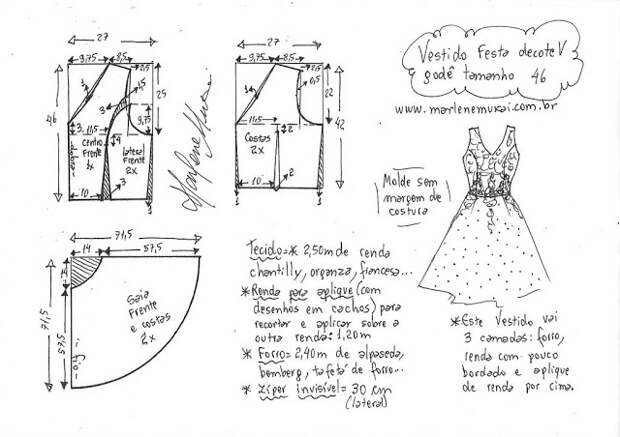 27
9,75 8,5
2,5
1,5
3
3
46
25
9,75
3 11,5
4
Centro
Frente
1x
lateral
Frente
2x
dobra
10
3
Marlene Mukai
27
9,75 8,5
2,5
0,5
3
22
42
11,5
2
Costas
2x
10
2
Vestido Festa decote V
godê tamanho 46
www.marlenemukai.com.br
Molde sem
margem de
costura
71,5
14 57,5
14
71,5
57,5
Fio
Saia
Frente
e costas
2x
Tecido=* 2,50m de renda
chantilly, organza, francesa...
* Renda para aplique (com
desenhos em cachos) para
recortar e aplicar sobre a
outra renda: 1,20m
* Forro= 2,40m de alpaseda,
bemberg, tafetá de forro...
* Zíper invisível= 30 cm
(lateral)
*Este Vestido vai
3 camadas: forro,
renda com pouco
bordado e aplique
de renda por cima.